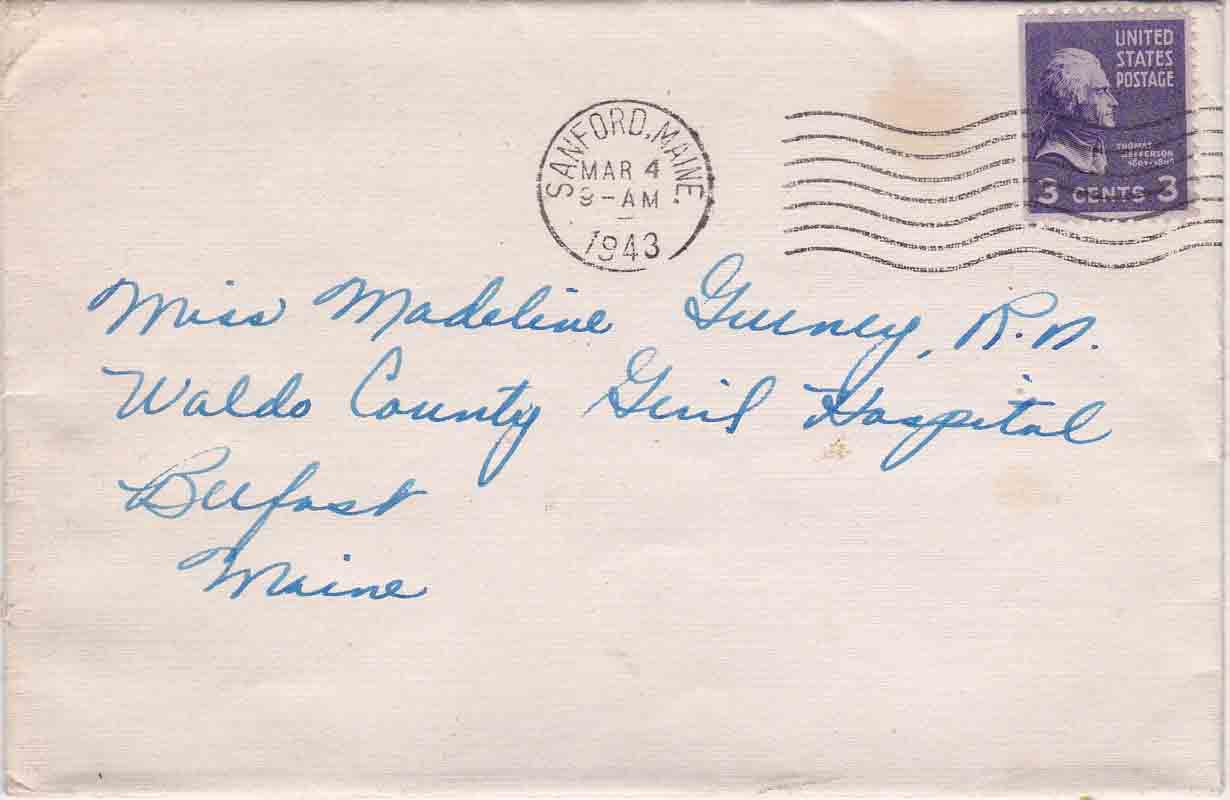 UNITED
STATES
POSTAGE
THOMAS
JEFFERSON
3 CENTS 3
SANFORD, MAINE.
MAR 4
9-AM
1943
Miss Madeline Gurney, R.N.
Waldo County Gen'l Hospital
Belfast
Maine